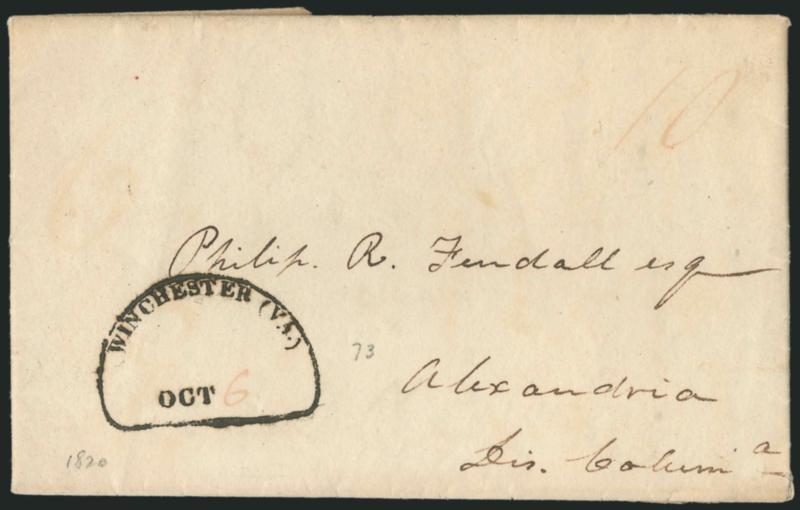 10
Philip. R. Fendall esq
WINCHESTER (VA.)
OCT 6
73
Alexandria
Dis. Colum a
1820